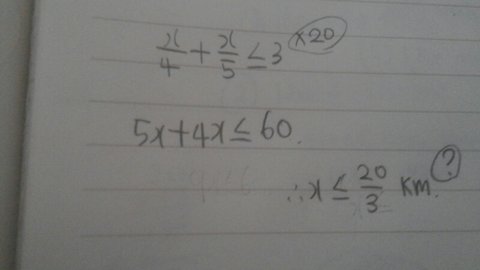 x/4 + x/5 ≤ 3 ×20
5x+4x ≤ 60.
∴ x ≤ 20/3 km. ?